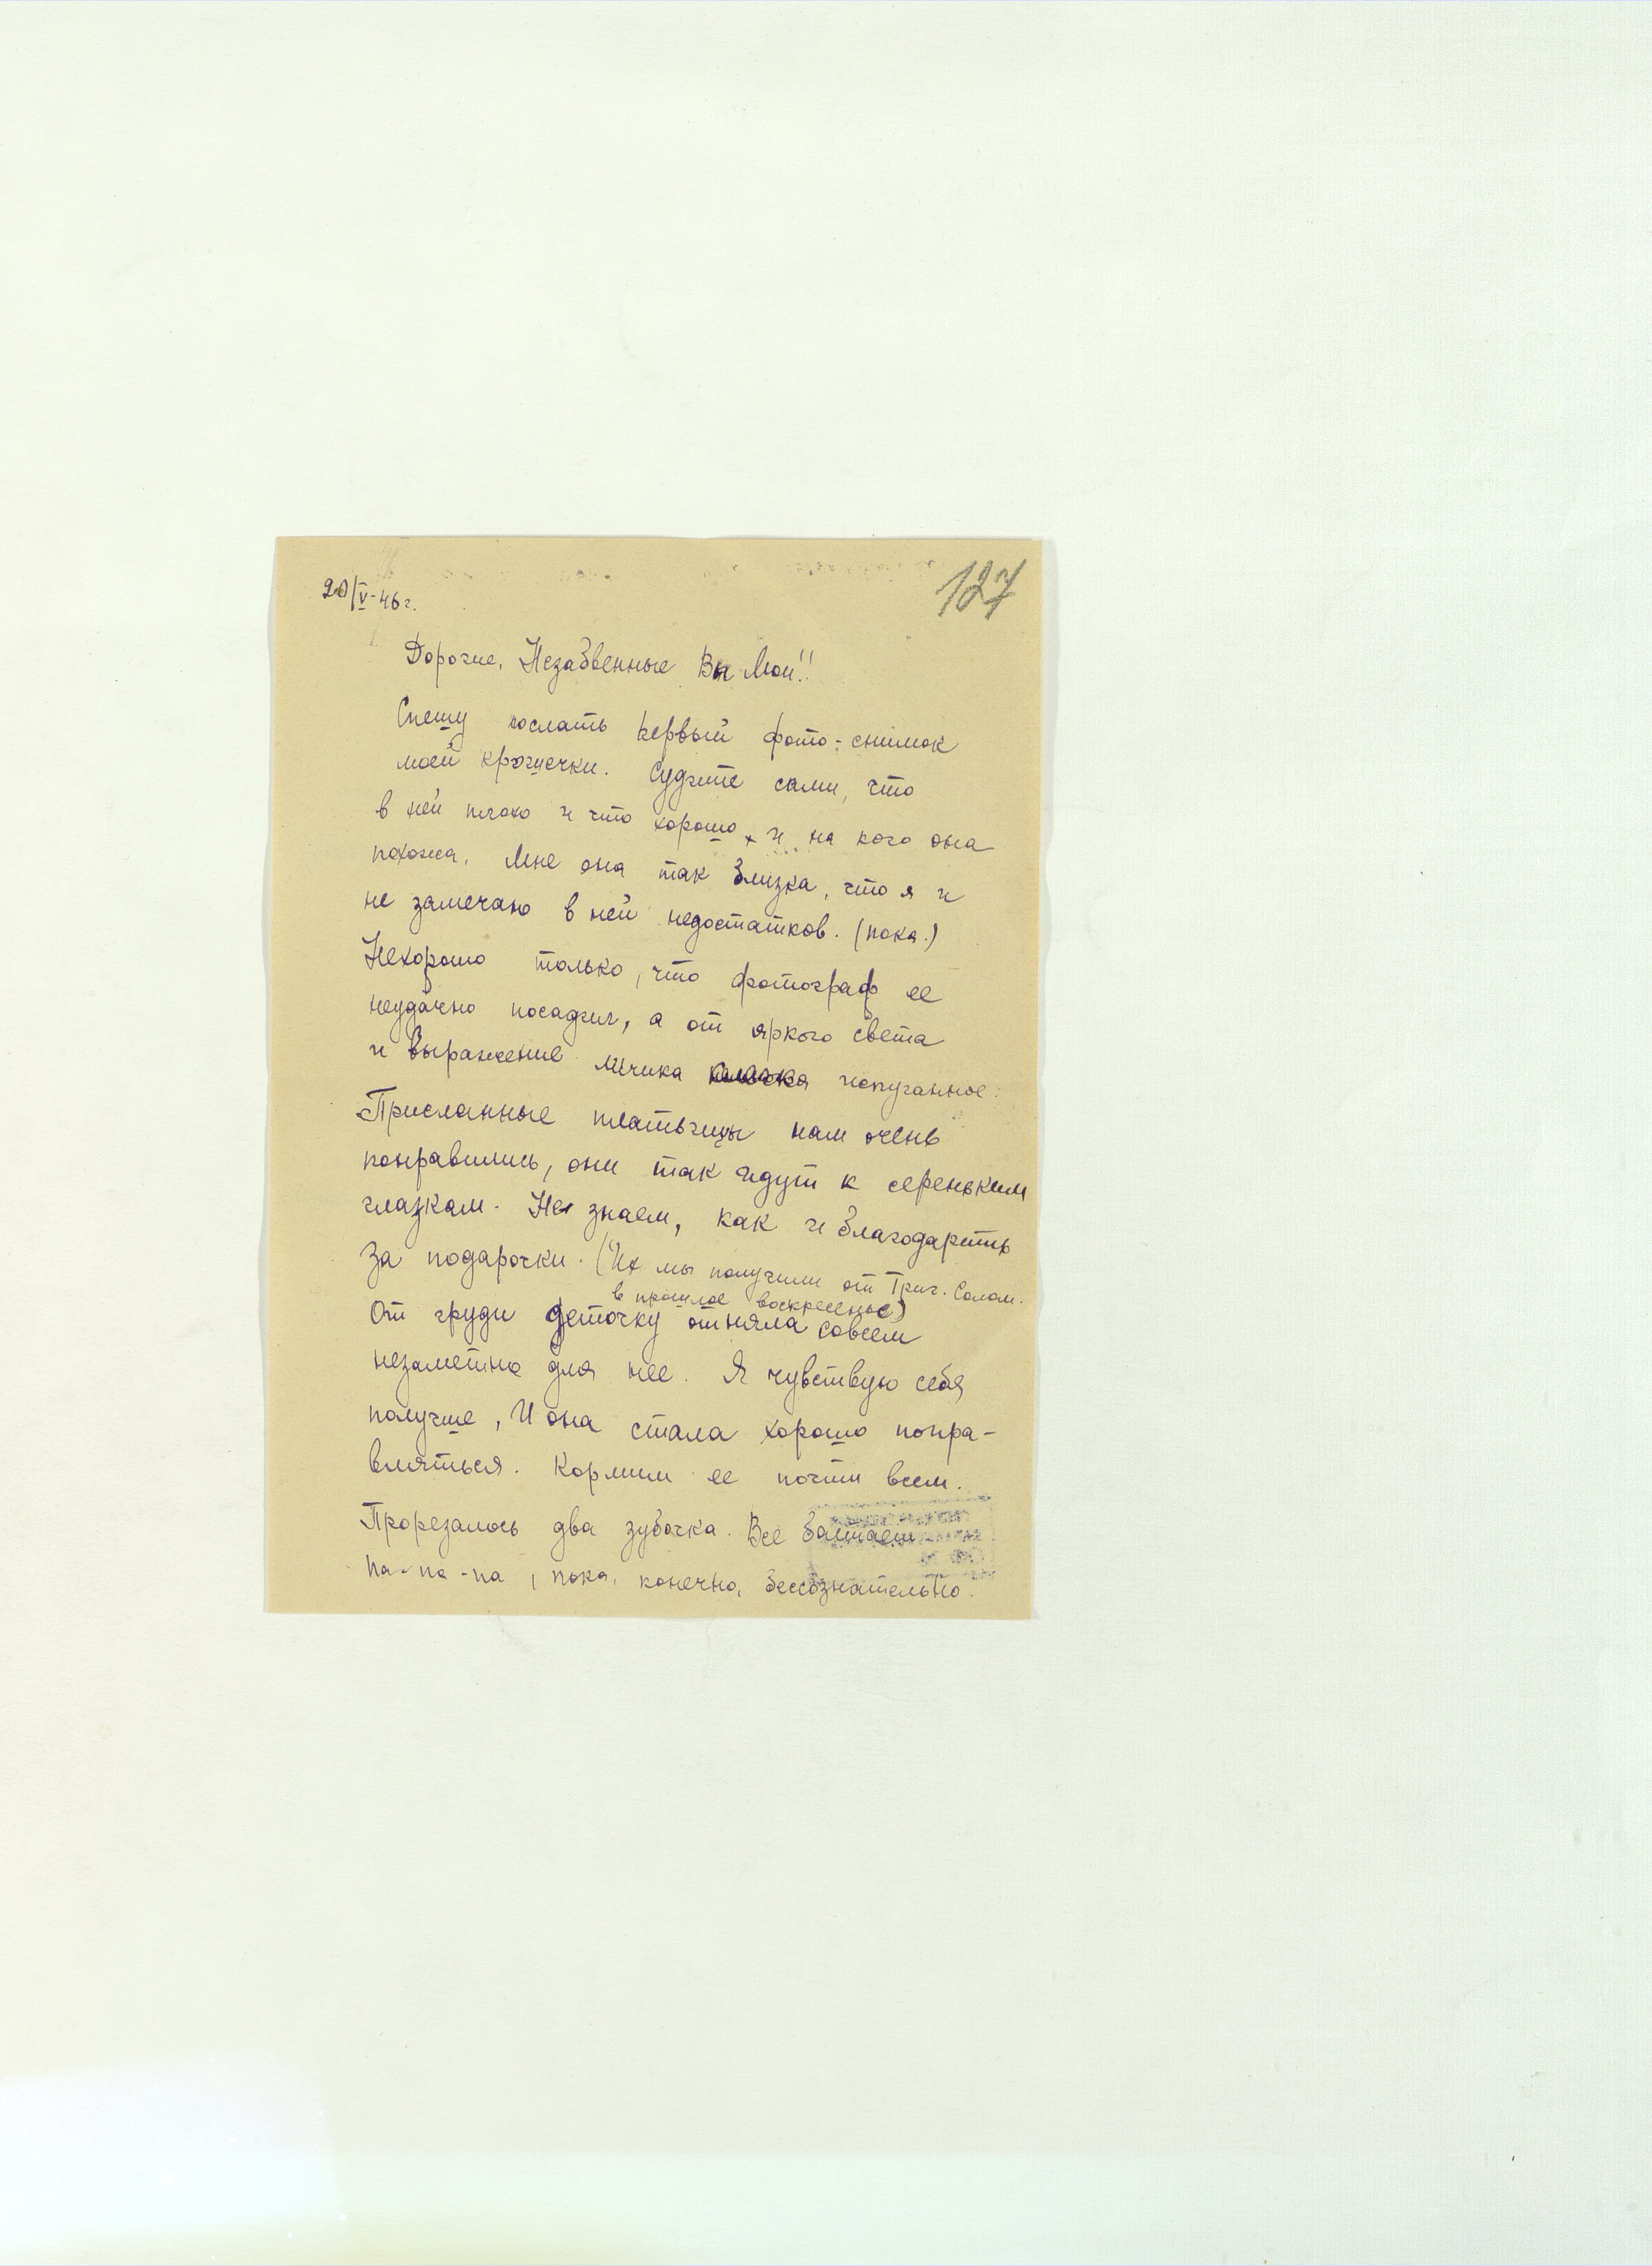 20/V-46г.
127
Дорогие, Незабвенные Вы Мои!!
Спешу послать первый фото-снимок
моей крошечки. Судите сами, что
в ней плохо и что хорошо, и на кого она
похожа. Мне она так близка, что я и
не замечаю в ней недостатков. (пока.)
Нехорошо только, что фотограф ее
неудачно посадил, а от яркого света
и выражение личика испуганное.
Присланные платьица нам очень
понравились, они так идут к сереньким
глазкам. Не знаем, как и благодарить
за подарочки. (Их мы получили от Григ. Солом.
в прошлое воскресенье)
От груди деточку отняла совсем
незаметно для нее. Я чувствую себя
получше, И она стала хорошо попра-
вляться. Кормим ее почти всем.
Прорезалось два зубочка. Все болтает
па-па-па, пока, конечно, бессознательно.